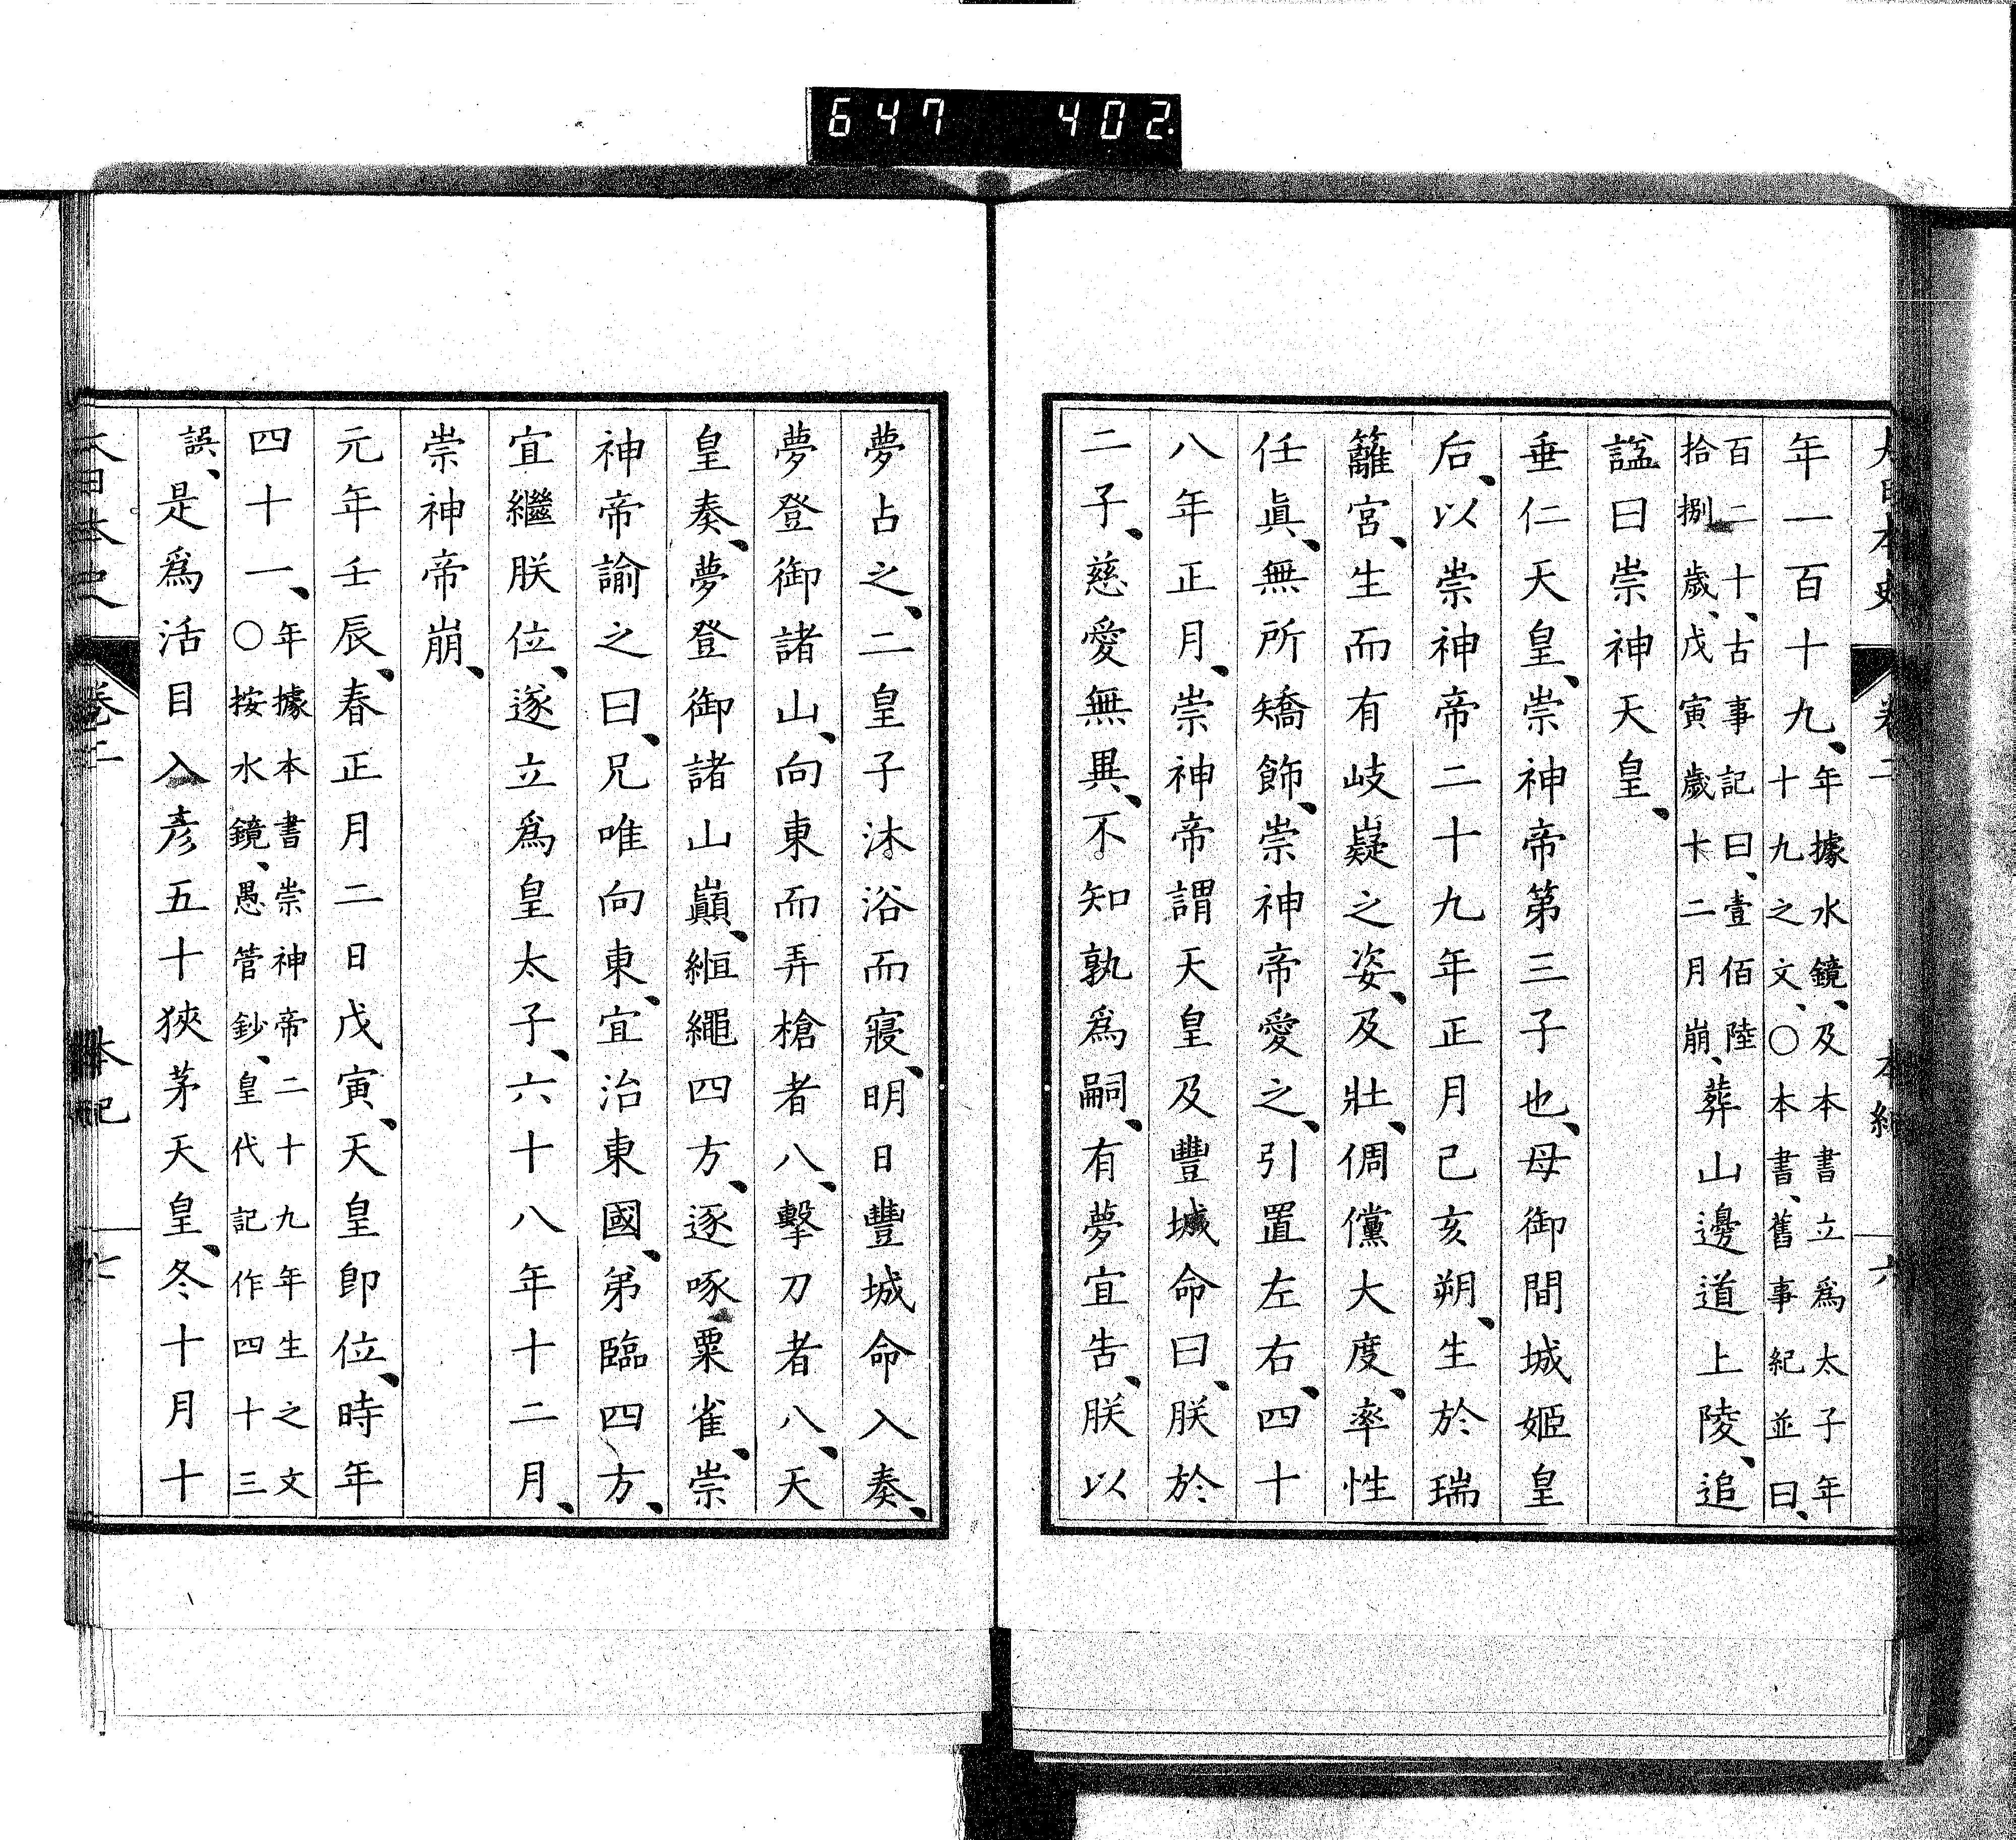 647 402
大日本史 卷二 本紀 六
年一百十九、年據水鏡、及本書立爲太子年
十九之文、〇本書、舊事紀並曰、
百二十、古事記曰、壹佰陸
拾捌歲、戊寅歲十二月崩、葬山邊道上陵、追
諡曰崇神天皇、
垂仁天皇、崇神帝第三子也、母御間城姬皇
后、以崇神帝二十九年正月己亥朔、生於瑞
籬宮、生而有岐嶷之姿、及壯、倜儻大度、率性
任眞、無所矯飾、崇神帝愛之、引置左右、四十
八年正月、崇神帝謂天皇及豐城命曰、朕於
二子、慈愛無異、不知孰爲嗣、有夢宜告、朕以
夢占之、二皇子沐浴而寢、明日豐城命入奏、
夢登御諸山、向東而弄槍者八、擊刀者八、天
皇奏、夢登御諸山巓、緪繩四方、逐啄粟雀、崇
神帝諭之曰、兄唯向東、宜治東國、弟臨四方、
宜繼朕位、遂立爲皇太子、六十八年十二月、
崇神帝崩、
元年壬辰、春正月二日戊寅、天皇卽位、時年
四十一、年據本書崇神帝二十九年生之文
〇按水鏡、愚管鈔、皇代記作四十三
誤、是爲活目入彥五十狹茅天皇、冬十月十
大日本史 卷二 本紀 七